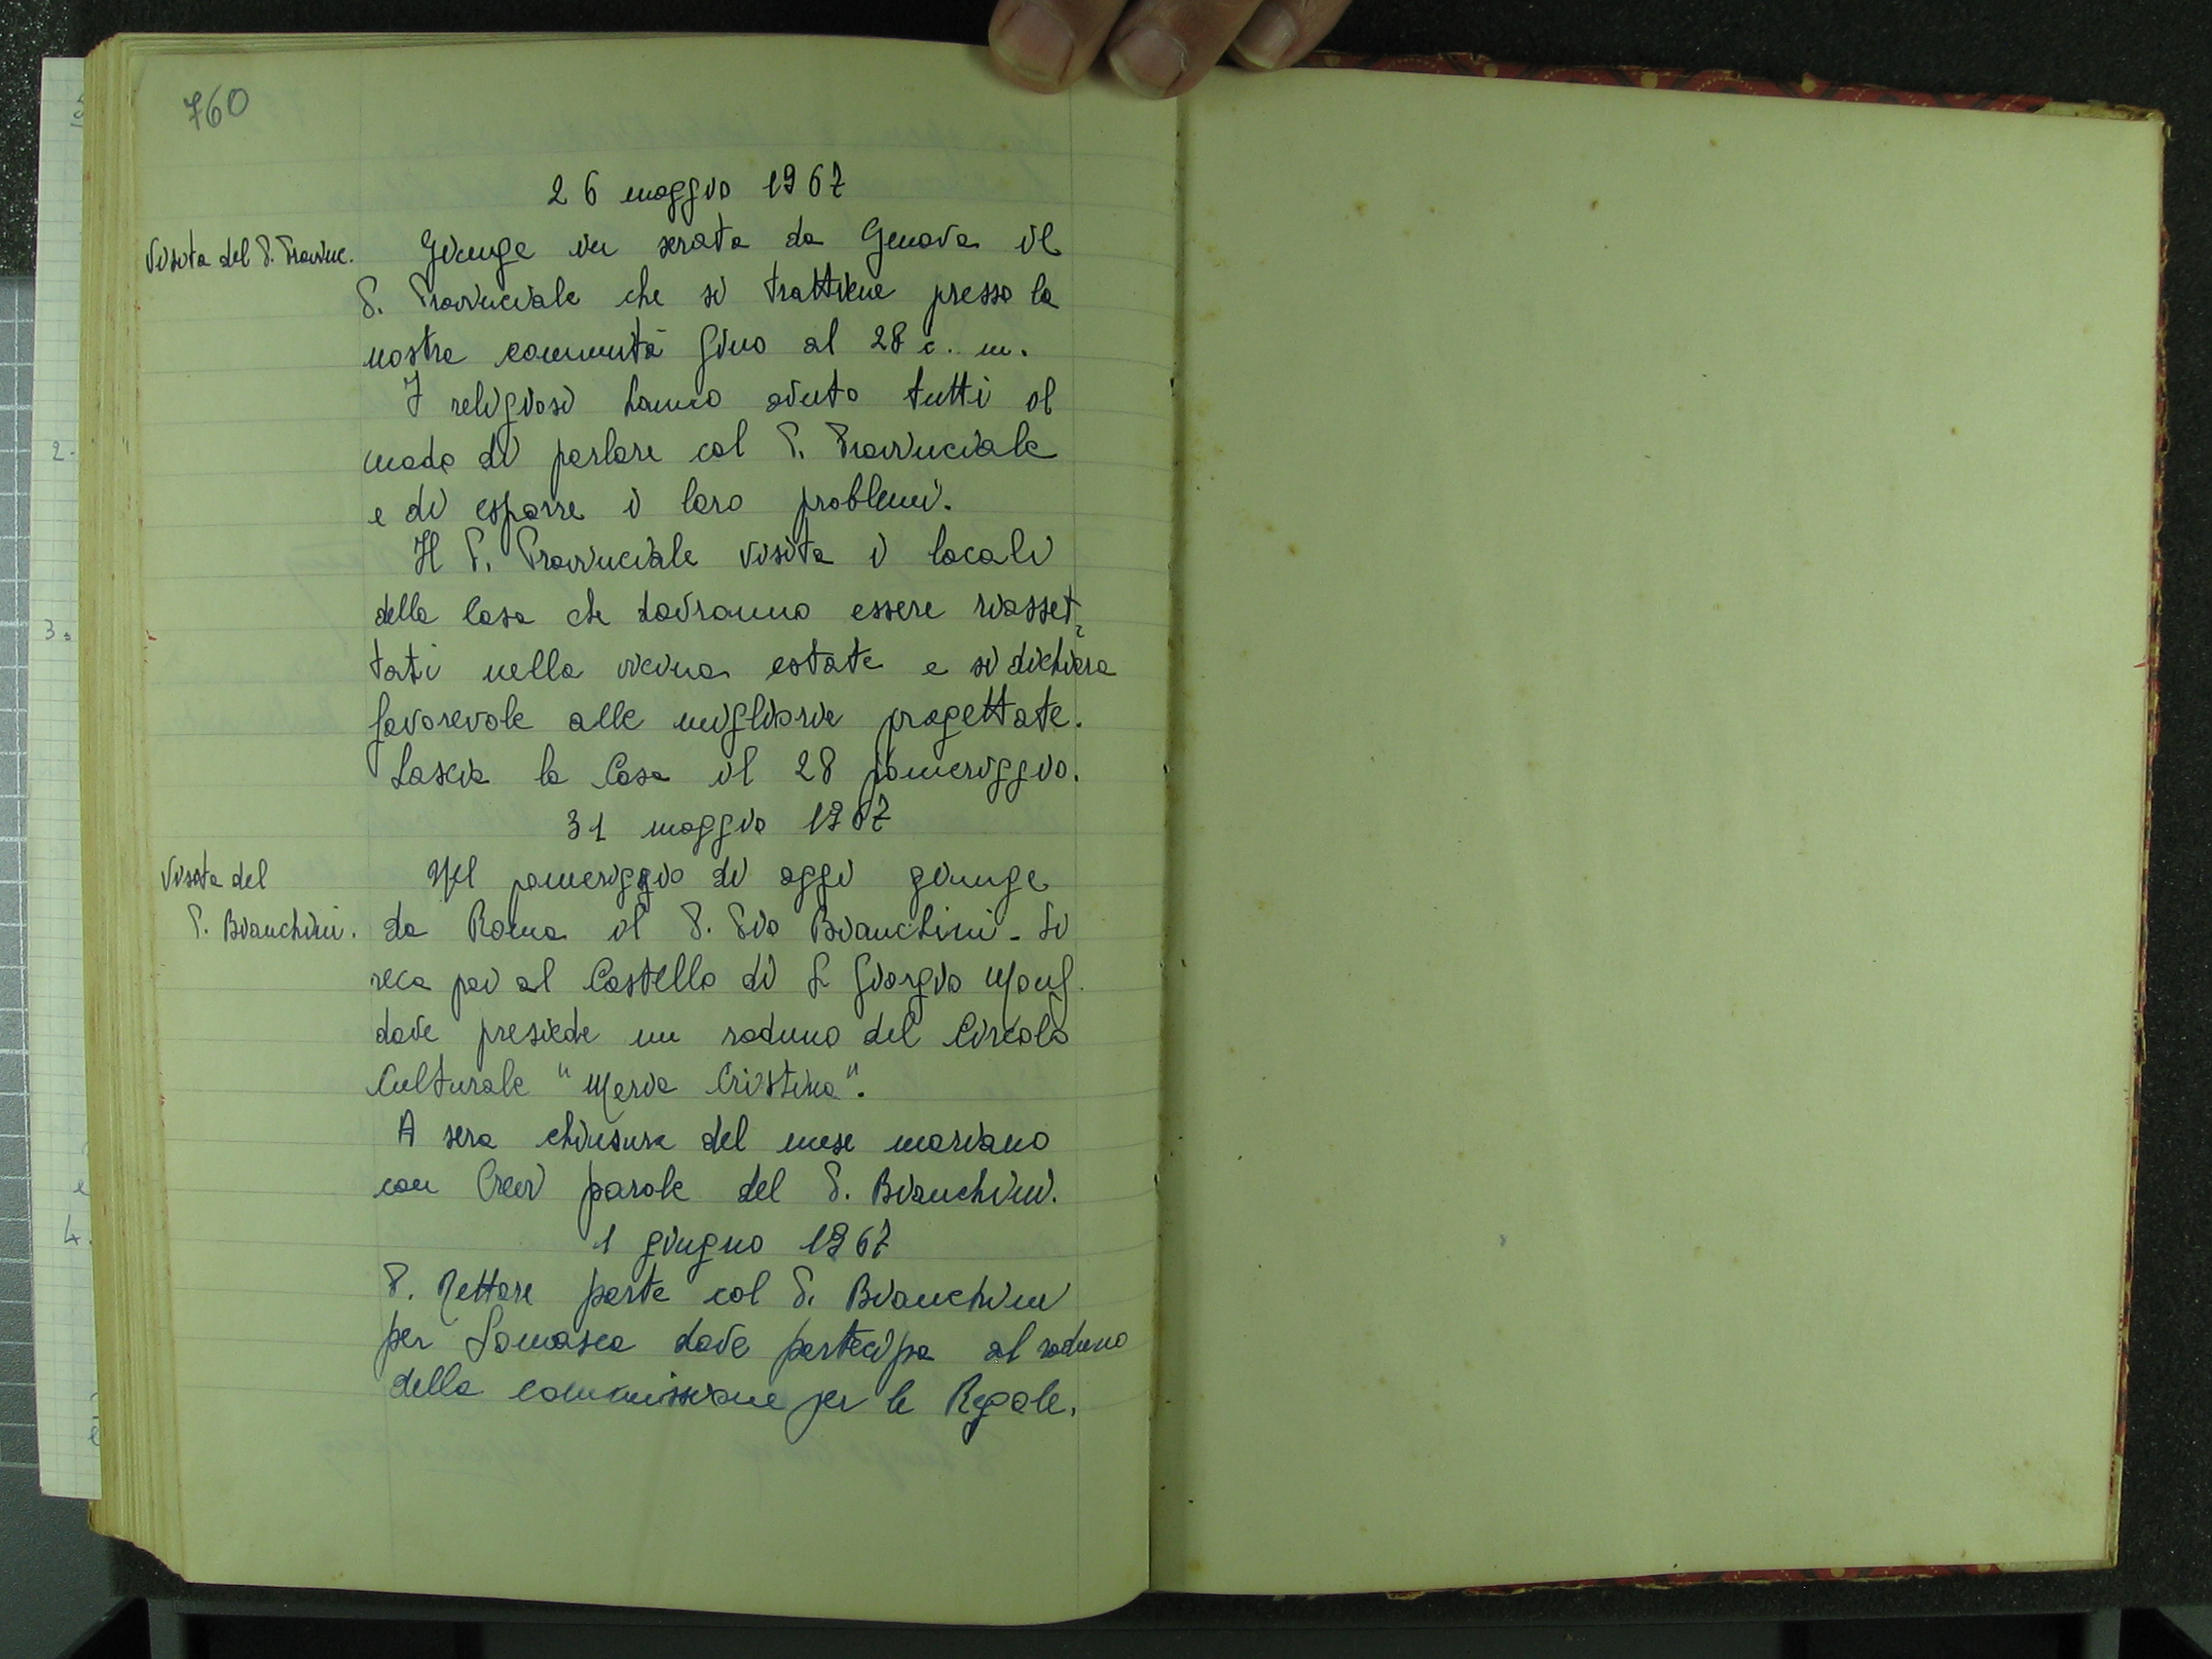 760
26 maggio 1967
Visita del P. Provinc.
Giunge in serata da Genova il
P. Provinciale che si trattiene presso la
nostra comunità fino al 28 c. m.
I religiosi hanno avuto tutti il
modo di parlare col P. Provinciale
e di esporre i loro problemi.
Il P. Provinciale visita i locali
della Casa che dovranno essere riasset-
tati nella vicina estate e si dichiara
favorevole alle migliorie progettate.
Lascia la Casa il 28 pomeriggio.
31 maggio 1967
Visita del
P. Bianchini.
Nel pomeriggio di oggi giunge
da Roma il P. Pio Bianchini - Si
reca poi al Castello di S. Giorgio Monf.
dove presiede un raduno del Circolo
Culturale "Maria Cristina".
A sera chiusura del mese mariano
con brevi parole del P. Bianchini.
1 giugno 1967
P. Rettore parte col P. Bianchini
per Somasca dove partecipa al raduno
della commissione per le Regole.
2.
3.
4.